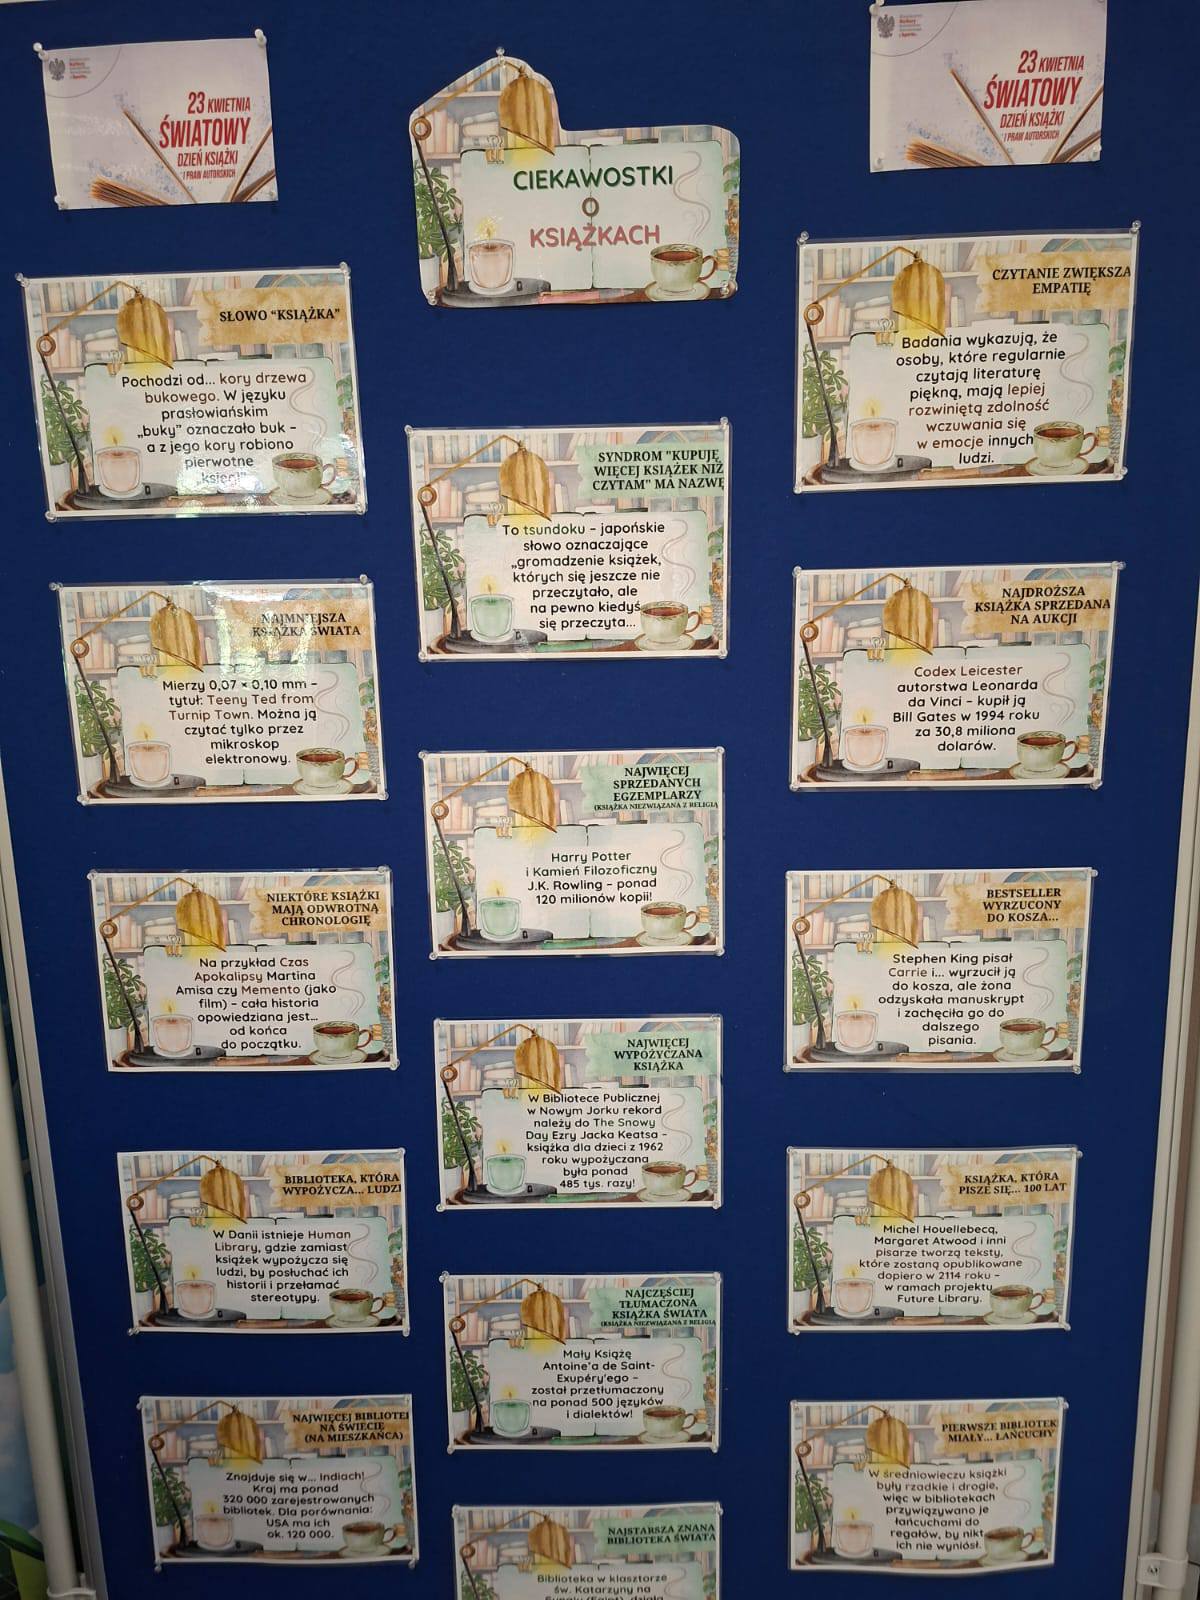 23 KWIETNIA
ŚWIATOWY
DZIEŃ KSIĄŻKI
I PRAW AUTORSKICH
CIEKAWOSTKI
O
KSIĄŻKACH
23 KWIETNIA
ŚWIATOWY
DZIEŃ KSIĄŻKI
I PRAW AUTORSKICH
SŁOWO "KSIĄŻKA"
Pochodzi od... kory drzewa
bukowego. W języku
prasłowiańskim
„buky” oznaczało buk –
a z jego kory robiono
pierwotne
NAJMNIEJSZA
KSIĄŻKA ŚWIATA
Mierzy 0,07 × 0,10 mm –
tytuł: Teeny Ted from
Turnip Town. Można ją
czytać tylko przez
mikroskop
elektronowy.
NIEKTÓRE KSIĄŻKI
MAJĄ ODWROTNĄ
CHRONOLOGIĘ
Na przykład Czas
Apokalipsy Martina
Amisa czy Memento (jako
film) – cała historia
opowiedziana jest...
od końca
do początku.
BIBLIOTEKA, KTÓRA
WYPOŻYCZA... LUDZI
W Danii istnieje Human
Library, gdzie zamiast
książek wypożycza się
ludzi, by posłuchać ich
historii i przełamać
stereotypy.
NAJWIĘCEJ BIBLIOTEK
NA ŚWIECIE
(NA MIESZKAŃCA)
Znajduje się w... Indiach!
Kraj ma ponad
320 000 zarejestrowanych
bibliotek. Dla porównania:
USA ma ich
ok. 120 000.
SYNDROM "KUPUJĘ
WIĘCEJ KSIĄŻEK NIŻ
CZYTAM" MA NAZWĘ
To tsundoku – japońskie
słowo oznaczające
„gromadzenie książek,
których się jeszcze nie
przeczytało, ale
na pewno kiedyś
się przeczyta...
NAJWIĘCEJ
SPRZEDANYCH
EGZEMPLARZY
(KSIĄŻKA NIEZWIĄZANA Z RELIGIĄ
Harry Potter
i Kamień Filozoficzny
J.K. Rowling – ponad
120 milionów kopii!
NAJWIĘCEJ
WYPOŻYCZANA
KSIĄŻKA
W Bibliotece Publicznej
w Nowym Jorku rekord
należy do The Snowy
Day Ezry Jacka Keatsa –
książka dla dzieci z 1962
roku wypożyczana
była ponad
485 tys. razy!
NAJCZĘŚCIEJ
TŁUMACZONA
KSIĄŻKA ŚWIATA
(KSIĄŻKA NIEZWIĄZANA Z RELIGIĄ
Mały Książę
Antoine'a de Saint-
Exupéry'ego –
został przetłumaczony
na ponad 500 języków
i dialektów!
NAJSTARSZA ZNANA
BIBLIOTEKA ŚWIATA
Biblioteka w klasztorze
św. Katarzyny na
CZYTANIE ZWIĘKSZA
EMPATIĘ
Badania wykazują, że
osoby, które regularnie
czytają literaturę
piękną, mają lepiej
rozwiniętą zdolność
wczuwania się
w emocje innych
ludzi.
NAJDROŻSZA
KSIĄŻKA SPRZEDANA
NA AUKCJI
Codex Leicester
autorstwa Leonarda
da Vinci – kupił ją
Bill Gates w 1994 roku
za 30,8 miliona
dolarów.
BESTSELLER
WYRZUCONY
DO KOSZA...
Stephen King pisał
Carrie i... wyrzucił ją
do kosza, ale żona
odzyskała manuskrypt
i zachęciła go do
dalszego
pisania.
KSIĄŻKA, KTÓRA
PISZE SIĘ... 100 LAT
Michel Houellebecq,
Margaret Atwood i inni
pisarze tworzą teksty,
które zostaną opublikowane
dopiero w 2114 roku –
w ramach projektu
Future Library.
PIERWSZE BIBLIOTEK
MIAŁY... ŁAŃCUCHY
W średniowieczu książki
były rzadkie i drogie,
więc w bibliotekach
przywiązywano je
łańcuchami do
regałów, by nikt
ich nie wyniósł.